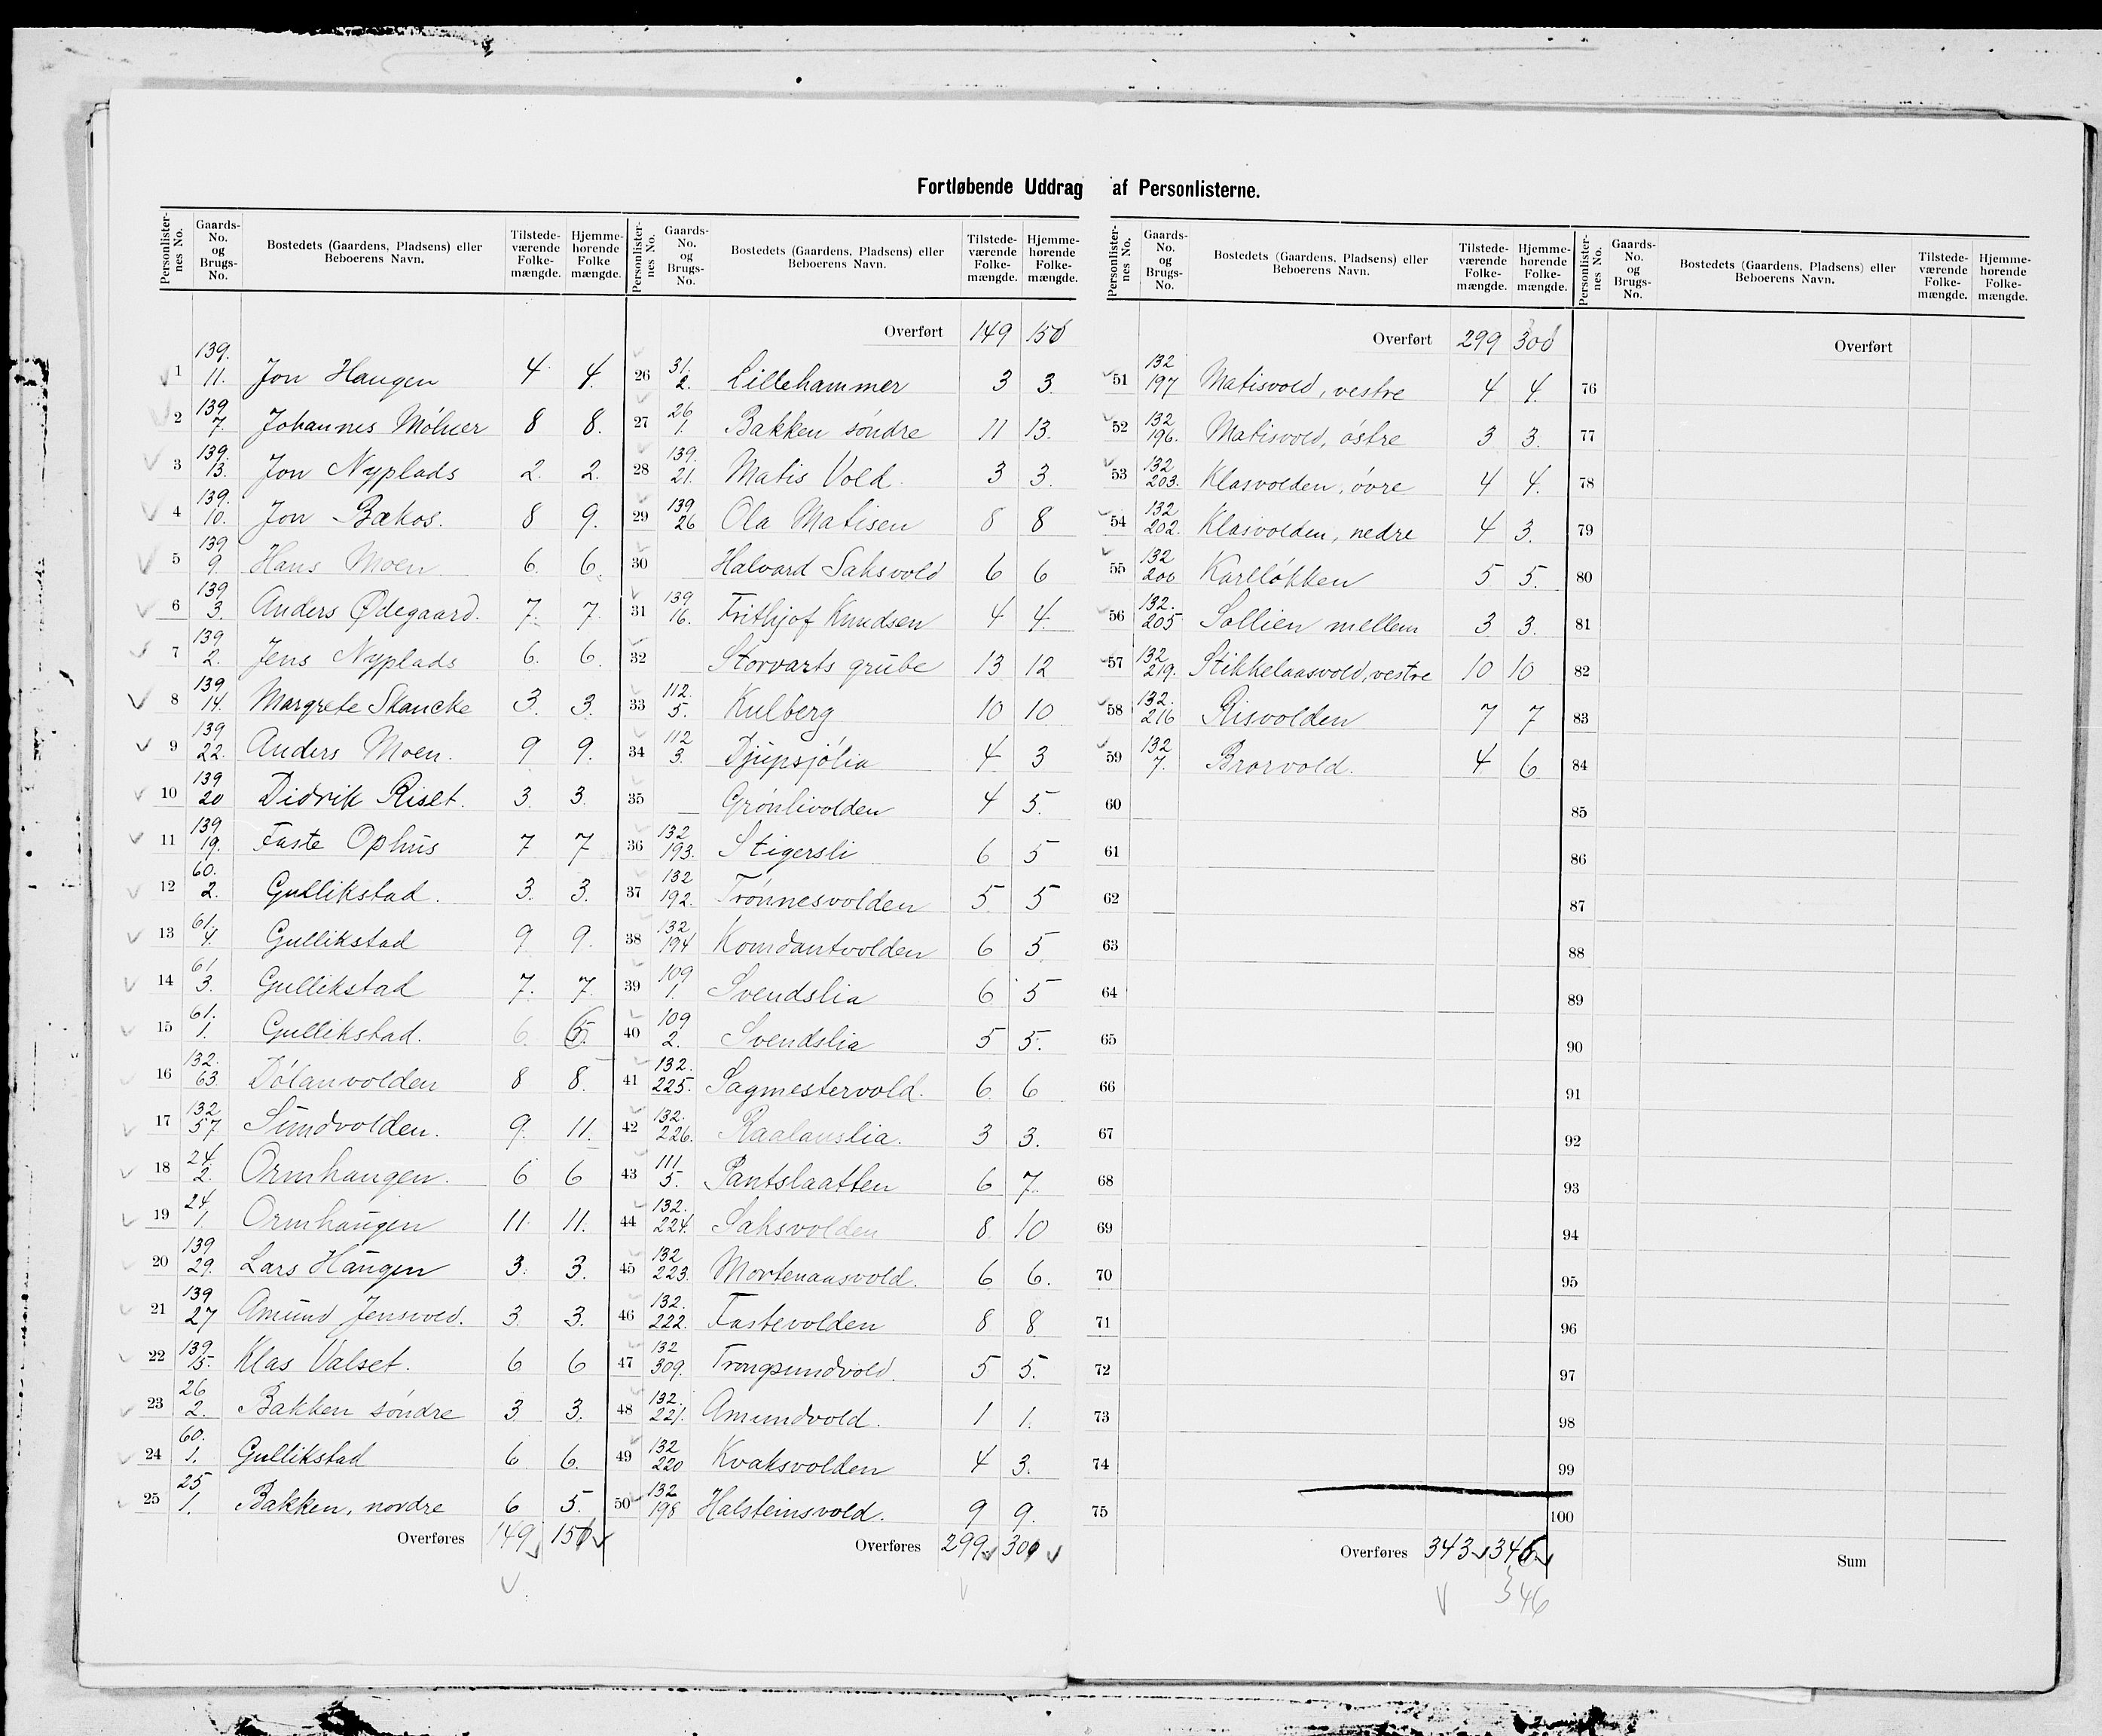 Fortløbende Uddrag af Personlisterne.
Personlister-nes No. Gaards-No. og Brugs-No. Bostedets (Gaardens, Pladsens) eller Beboerens Navn. Tilstede-værende Folke-mængde. Hjemme-hørende Folke mængde.
139. 11. 1 Jon Haugen 4 4.
2 139 7. Johannes Mölner 8 8.
3 139. 13. Jon Nyplads 2. 2.
4 139. 10. Jon Bækos. 8 9.
5 139 9. Hans Moen 6. 6.
6 139 3. Anders Ødegaard. 7. 7
7 139 2. Jens Nyplads 6. 6.
8 139 14. Margrete Skancke 3. 3.
9 139 22. Anders Moen. 9 9.
10 139 20 Didrik Riset. 3. 3.
11 139 19. Faste Ophus 7 7
12 60. 2. Gullikstad. 3. 3.
13 61. 4. Gullikstad 9 9.
14 61 3. Gullikstad 7. 7.
15 61. 1. Gullikstad. 6.
16 132. 63. Dólanvolden 8 8.
17 132 57 Sundvolden. 9. 11.
18 24. 2. Ormhaugen. 6 6
19 24. 1. Ormhaugen 11. 11.
20 139 29. Lars Haugen 3. 3.
21 139 27 Amund Jensvold. 3. 3.
22 139. 15. Klas Valset. 6 6
23 26 2. Bakken söndre 3. 3.
24 60. 1. Gullikstad 6 6.
25 25. 1. Bakken, nordre 6 5.
Overføres 149
Personlister-nes No. Gaards-No. og Brugs-No. Bostedets (Gaardens, Pladsens) eller Beboerens Navn. Tilstede-værende Folke-mængde. Hjemme-hørende Folke-mængde.
Overført 149 150
26 31. 2. Lillehammer 3 3.
27 26 1. Bakken söndre 11 13.
28 139. 21. Matis Vold. 3 3.
29 139 26 Ola Matisen 8 8
30 Halvard Saksvold 6 6
31 139 16. Frithjof Knudsen 4 4.
32 Storvarts grube 13 12
33 112. 5. Kulberg 10 10
34 112 3. Djupsjólia 4 3
35 Grönlivolden 4 5.
36 132 193. Stigersli 6 5
37 132 192. Trönnesvolden 5. 5
38 132 194 Komdantvolden 6 5.
39 109 1. Svendslia 6 5
40 109 2. Svendslia 5 5.
41 132. 225. Sagmestervold. 6. 6
42 132. 226. Raalauslia. 3 3.
43 111. 5. Pantslaatten 6 7.
44 132. 224. Saksvolden 8. 10
45 132 223. Mortenaasvold. 6 6.
46 132. 222. Fastevolden 8 8.
47 132 309. Trongsundvold. 5 5.
48 132. 221. Amundvold. 1 1.
49 132 220 Kvaksvolden 4 3.
50 132 198 Halsteinsvold. 9 9.
Overføres 299 300
Personlister-nes No. Gaards-No. og Brugs-No. Bostedets (Gaardens, Pladsens) eller Beboerens Navn. Tilstede-værende Folke-mængde. Hjemme-hørende Folke-mængde.
Overført 299 300
51 132 197 Matisvold, vestre 4 4.
52 132 196. Matisvold, östre 3 3.
53 132 203. Klasvolden, óvre 4 4.
54 132 202. Klasvolden, nedre 4 3.
55 132 200 Karllökken 5 5.
56 132. 205 Sollien mellem 3 3.
57 132 219. Stikkelaasvold, vestre 10 10
58 132. 216 Risvolden 7 7
59 132 7. Brorvold. 4 6
60
61
62
63
64
65
66
67
68
69
70
71
72
73
74
75
Overføres 343 346
346
Personlister-nes No. Gaards-No. og Brugs-No. Bostedets (Gaardens, Pladsens) eller Beboerens Navn. Tilstede-værende Folke-mængde. Hjemme-hørende Folke-mængde.
Overført
76
77
78
79
80
81
82
83
84
85
86
87
88
89
90
91
92
93
94
95
96
97
98
99
100
Sum